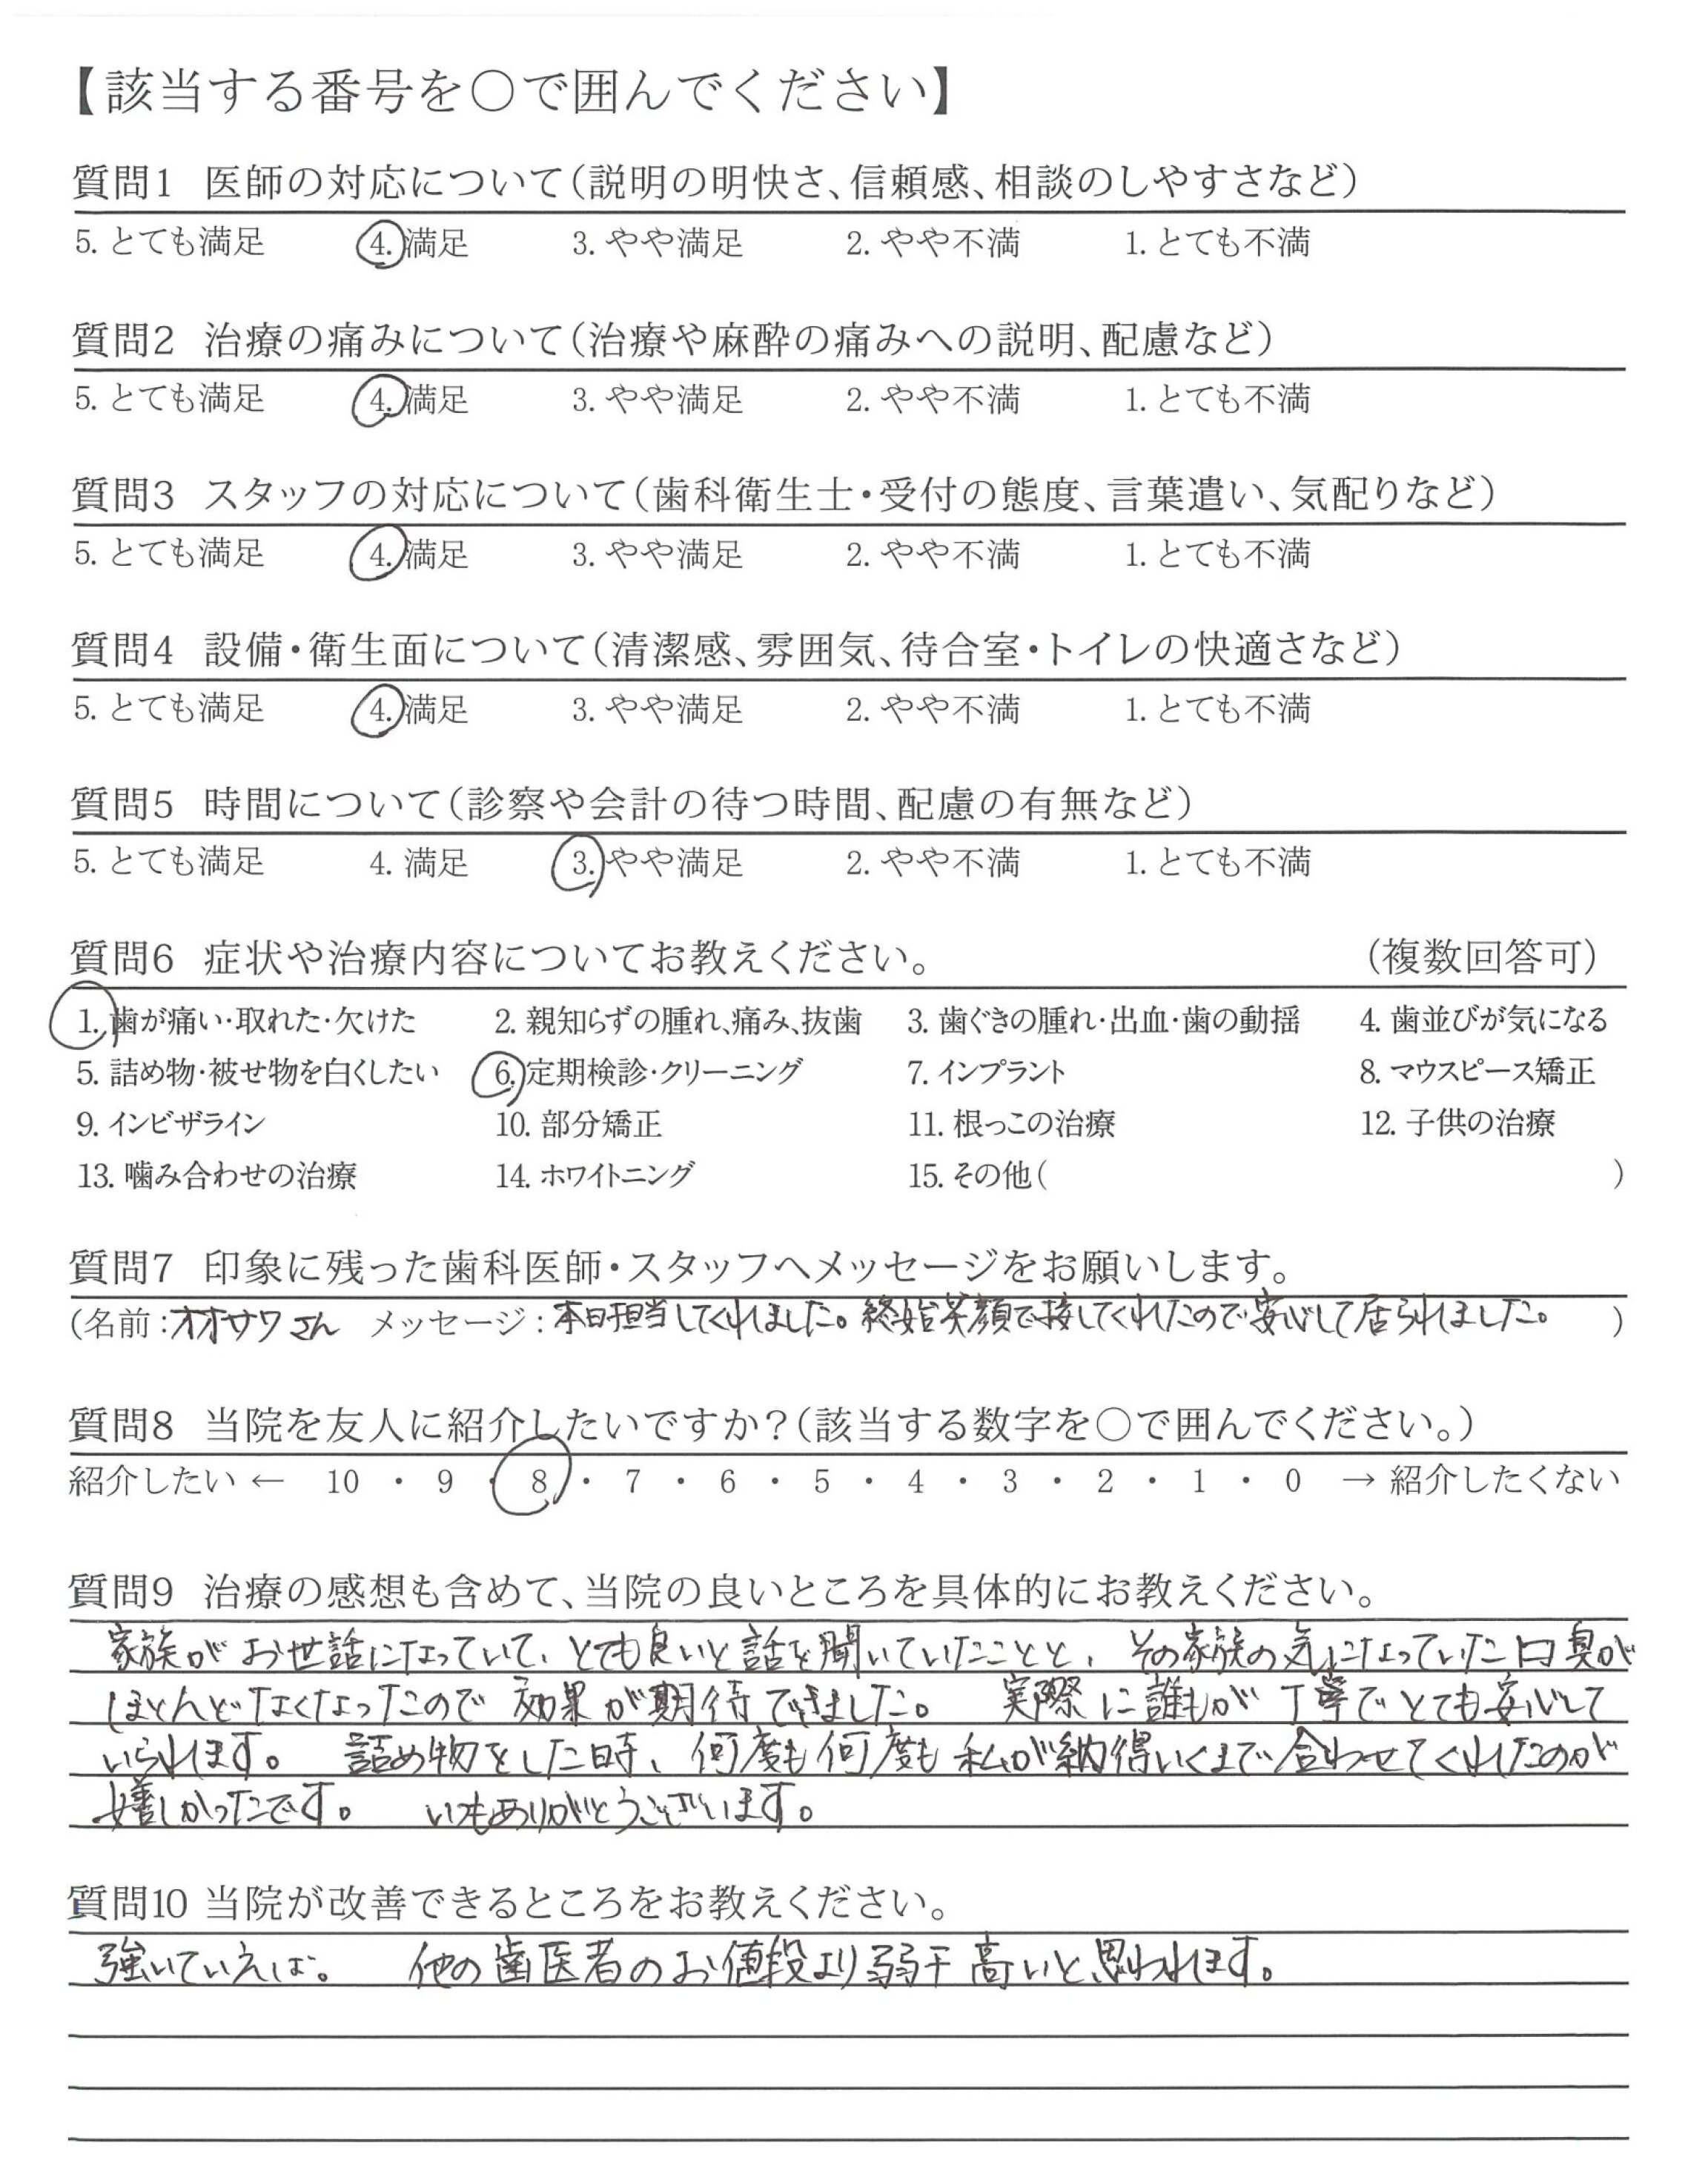 【該当する番号を○で囲んでください】
質問1 医師の対応について(説明の明快さ、信頼感、相談のしやすさなど)
5. とても満足 4. 満足 3. やや満足 2. やや不満 1. とても不満
質問2 治療の痛みについて(治療や麻酔の痛みへの説明、配慮など)
5. とても満足 4. 満足 3. やや満足 2. やや不満 1. とても不満
質問3 スタッフの対応について(歯科衛生士・受付の態度、言葉遣い、気配りなど)
5. とても満足 4. 満足 3. やや満足 2. やや不満 1. とても不満
質問4 設備・衛生面について(清潔感、雰囲気、待合室・トイレの快適さなど)
5. とても満足 4. 満足 3. やや満足 2. やや不満 1. とても不満
質問5 時間について(診察や会計の待つ時間、配慮の有無など)
5. とても満足 4. 満足 3. やや満足 2. やや不満 1. とても不満
質問6 症状や治療内容についてお教えください。 (複数回答可)
1. 歯が痛い・取れた・欠けた 2. 親知らずの腫れ、痛み、抜歯 3. 歯ぐきの腫れ・出血・歯の動揺 4. 歯並びが気になる
5. 詰め物・被せ物を白くしたい 6. 定期検診・クリーニング 7. インプラント 8. マウスピース矯正
9. インビザライン 10. 部分矯正 11. 根っこの治療 12. 子供の治療
13. 噛み合わせの治療 14. ホワイトニング 15. その他( )
質問7 印象に残った歯科医師・スタッフへメッセージをお願いします。
(名前:オオサワさん メッセージ:本日担当してくれました。終始笑顔で接してくれたので安心して居られました。 )
質問8 当院を友人に紹介したいですか?(該当する数字を○で囲んでください。)
紹介したい ← 10 ・ 9 ・ 8 ・ 7 ・ 6 ・ 5 ・ 4 ・ 3 ・ 2 ・ 1 ・ 0 → 紹介したくない
質問9 治療の感想も含めて、当院の良いところを具体的にお教えください。
家族がお世話になっていて、とても良いと話を聞いていたことと、その家族の気になっていた口臭が
ほとんどなくなったので効果が期待できました。 実際に誰もが丁寧でとても安心して
いられます。 詰め物をした時、何度も何度も私が納得いくまで合わせてくれたのが
嬉しかったです。 いつもありがとうございます。
質問10 当院が改善できるところをお教えください。
強いていえば。 他の歯医者のお値段より弱干高いと思われます。